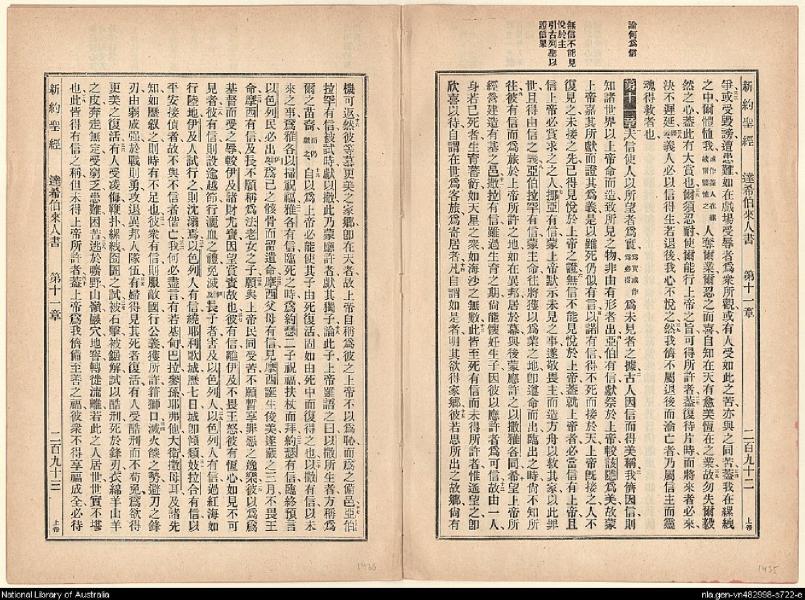 論何爲信
無信不能見
悅於主
引古列聖以
證信果
新約聖經 達希伯來人書 第十一章 二百九十二 上帝
爭或受毀謗遭患難如在戲場受辱者爲衆所觀或有人受如此之苦亦與之同苦蓋我在縲絏
之中爾體恤我 人奪爾業爾忍之而喜自知在天有愈美恆在之業故勿失爾毅
然之心蓋此有大賞也爾須忍耐使爾能行上帝之旨可得所許者蓋復待片時而將來者必來
決不遲延義人必以信得生若退後我心不悅之然我儕不屬退後而淪亡者乃屬信主而靈
魂得救者也
第十一章 夫信使人以所望者爲實 爲未見者之據古人因信而得美稱我儕因信則
知諸世界以上帝命而造致所見之物非由有形者出亞伯有信獻祭於上帝較該隱爲美故蒙
上帝嘉其所獻而證其爲義是以雖死仍似有言以諾有信得不死而接於天上帝旣接之人不
復見之未接之先已得見悅於上帝之證無信不能見悅於上帝蓋就上帝者必當信有上帝且
信上帝必賞求之之人挪亞有信上帝默示未見之事遂敬畏主而造方舟以救其家以此罪
世且得由信之義亞伯拉罕有信蒙主命往將獲以爲業之地卽遵命而出臨出之時尚不知所
往彼有信而爲旅於上帝所許之地如在異邦居於幕與後蒙應許之以撒雅各同希望上帝所
經營建造有基之邑撒拉有信雖過生育之期尚能懷妊生子因彼以應許者爲可信故由一人
身若已死者生育蕃衍如天星之衆如海沙之無數此皆至死有信而未得所許者惟遙望之卽
欣喜以待自謂在世爲客旅爲寄居者凡自謂如是者明其欲得家鄉彼若思所出之故鄉尚有
機可返然彼等慕更美之家鄉卽在天者故上帝自稱爲彼之上帝不以爲恥而爲之備邑亞伯
拉罕有信被試時獻以撒此乃蒙應許者獻其獨子論此子上帝曰以撒所生者方稱爲
爾之苗裔 自以爲上帝必能使其子由死復活固如由死中而復得之也以撒有信以未
來之事爲雅各以掃祝福雅各有信臨死之時爲約瑟二子祝福扶杖而拜約瑟有信臨終預言
以色列民必出 爲己之骸骨而留遺命摩西父母有信見摩西生後美遂藏之三月不畏王
命摩西有信及長不願稱爲法老女之子願與上帝民同受苦不願暫享罪惡之逸樂彼以爲爲
基督而受之辱較伊及諸財尤寶因望賞賚故也彼有信離伊及不畏王怒彼有恆心如見不可
見者彼有信則設逾越節行灑血之禮免滅長子者害及以色列人以色列人有信過紅海如
行陸地伊及人試行之則沈溺爲以色列人有信繞耶利歌城歷七日城卽傾頹妓拉合有信以
平安接偵者故不與不信者偕亡我何必盡言有若基甸巴拉參孫耶弗他大衛撒母耳及諸先
知如歷叙之則時有不足也彼衆有信則服敵國行公義獲所許箝獅口滅火燄之勢避刀之鋒
刃由弱成強於戰則勇攻退異邦人隊伍有婦得見其死者復活有人受酷刑而不苟免爲欲得
更美之復活有人受凌侮鞭扑縲絏囹圄之試被石擊被鋸解試以酷刑死於鋒刃衣綿羊山羊
之皮奔走無定受窮乏患難困苦逃於曠野山嶺巖穴地窨轉徙流離若此之人居世世實不堪
也此皆得有信之稱但未得上帝所許者蓋上帝爲我儕備至善之福使彼衆不得享福成全必待
新約聖經 達希伯來人書 第十一章 二百九十三 上帝
1436
1435
National Library of Australia
nla.gen-vn482998-s722-e